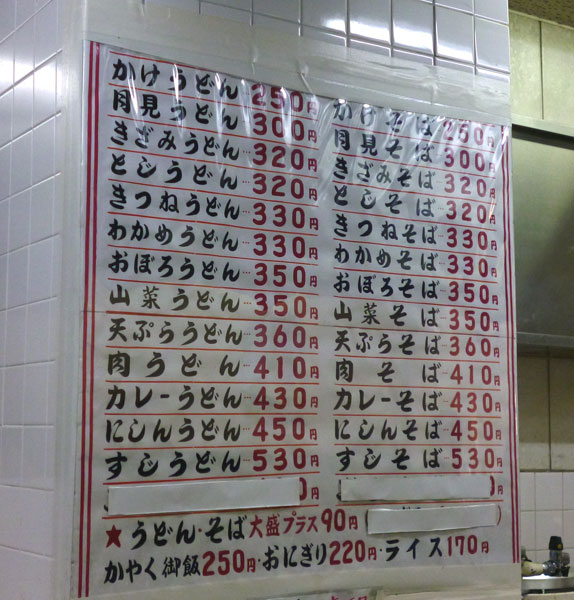 かけうどん 250円
月見うどん 300円
きざみうどん… 320円
とじうどん… 320円
きつねうどん… 330円
わかめうどん… 330円
おぼろうどん… 350円
山菜うどん… 350円
天ぷらうどん… 360円
肉うどん… 410円
カレーうどん… 430円
にしんうどん… 450円
すじうどん… 530円
0円
かけそば… 250円
月見そば… 300円
きざみそば… 320円
とじそば… 320円
きつねそば… 330円
わかめそば… 330円
おぼろそば… 350円
山菜そば… 350円
天ぷらそば… 360円
肉そば… 410円
カレーそば… 430円
にしんそば… 450円
すじそば… 530円
円
★うどん・そば大盛プラス90円
かやく御飯250円・おにぎり220円・ライス170円